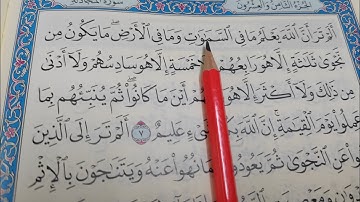 الجزء الثامن والعشرون سورة المجادلة
ألم تر أن الله يعلم ما في السموت وما في الأرض ما يكون من
نجوى ثلثة إلا هو رابعهم خمسة إلا هو سادسهم ولا أدنى
من ذلك ولا أكثر إلا هو معهم أين ما كانوا ثم ينبئهم بما
عملوا يوم القيمة إن الله بكل شيء عليم ٧ ألم تر إلى الذين
عن النجوى ثم يعودون لما نهوا عنه ويتنجون بالإثم